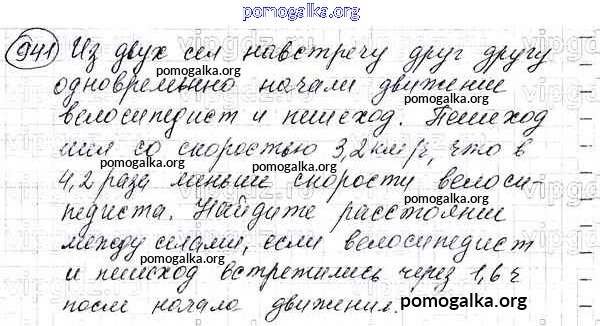 pomogalka.org
941 Из двух сел навстречу друг другу
pomogalka.org
одновременно начали движение
велосипедист и пешеход. Пешеход
pomogalka.org
шел со скоростью 3,2 км/ч, что в
pomogalka.org
4,2 раза меньше скорости велоси-
педиста. Найдите расстояние
pomogalka.org
между селами, если велосипедист
и пешеход встретились через 1,6 ч
pomogalka.org
после начала движения.
pomogalka.org